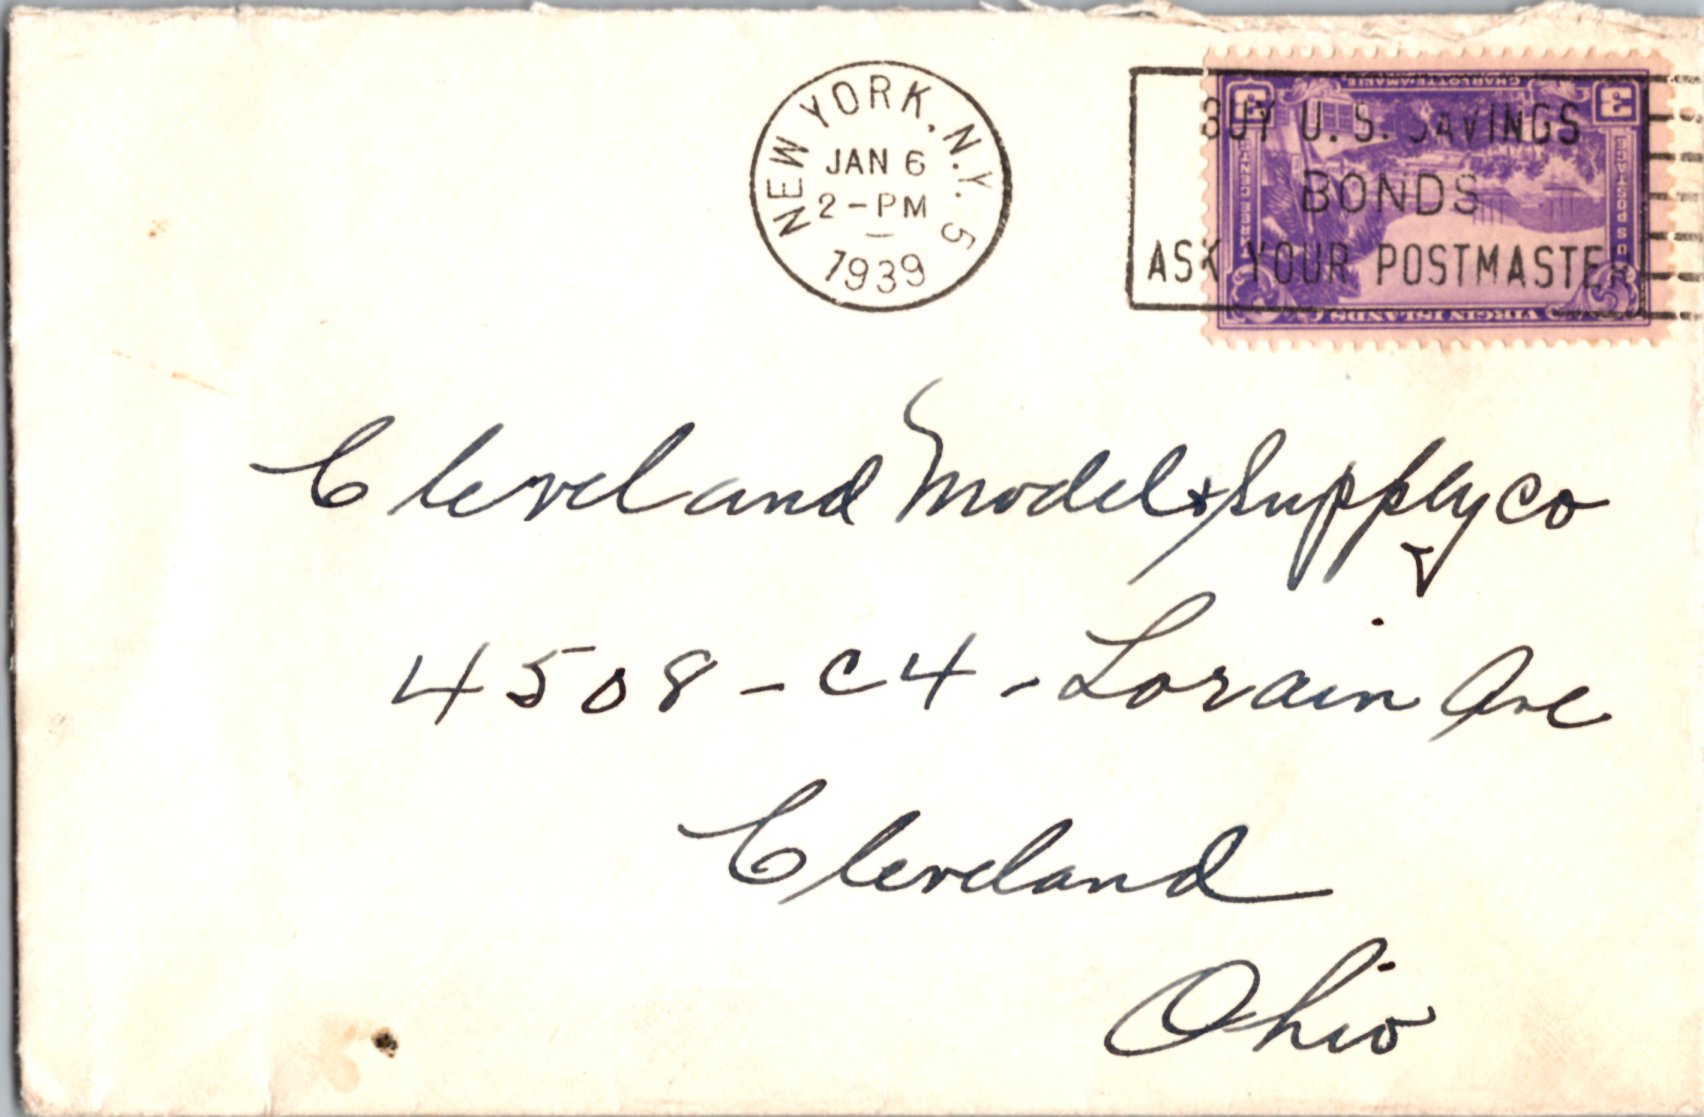 NEW YORK, N.Y. 5
JAN 6
2-PM
1939
BUY U.S. SAVINGS
BONDS
ASK YOUR POSTMASTER
VIRGIN ISLANDS
CHARLOTTE AMALIE
3
3
Cleveland Model & Supply Co
4508-C4-Lorain Ave
Cleveland
Ohio